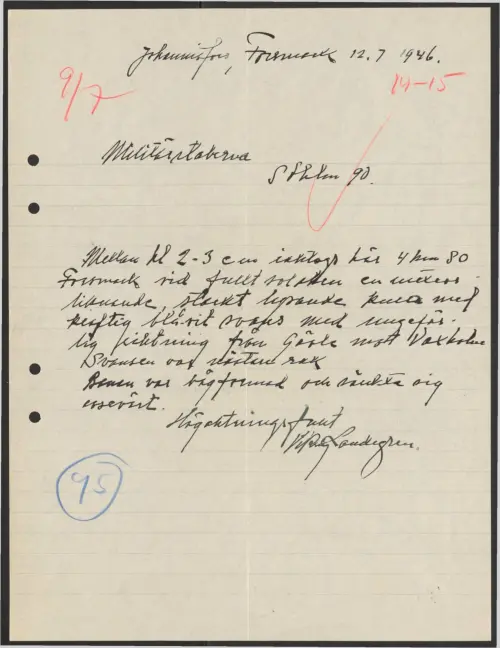 Johannisfors, Forsmark 12.7 1946.
9/7
14-15
Militärstaberna
Sthlm 90.
Mellan kl 2-3 em iakttogs här 4 km SO
Forsmark vid fullt solsken en meteor-
liknande, starkt lysande kula med
kraftig blåvit svans med ungefär-
lig riktning från Gävle mot Vaxholm
Svansen var nästan rak
Banan var bågformad och sänkte sig
oavbrutet.
Högaktningsfullt
Landegren.
95